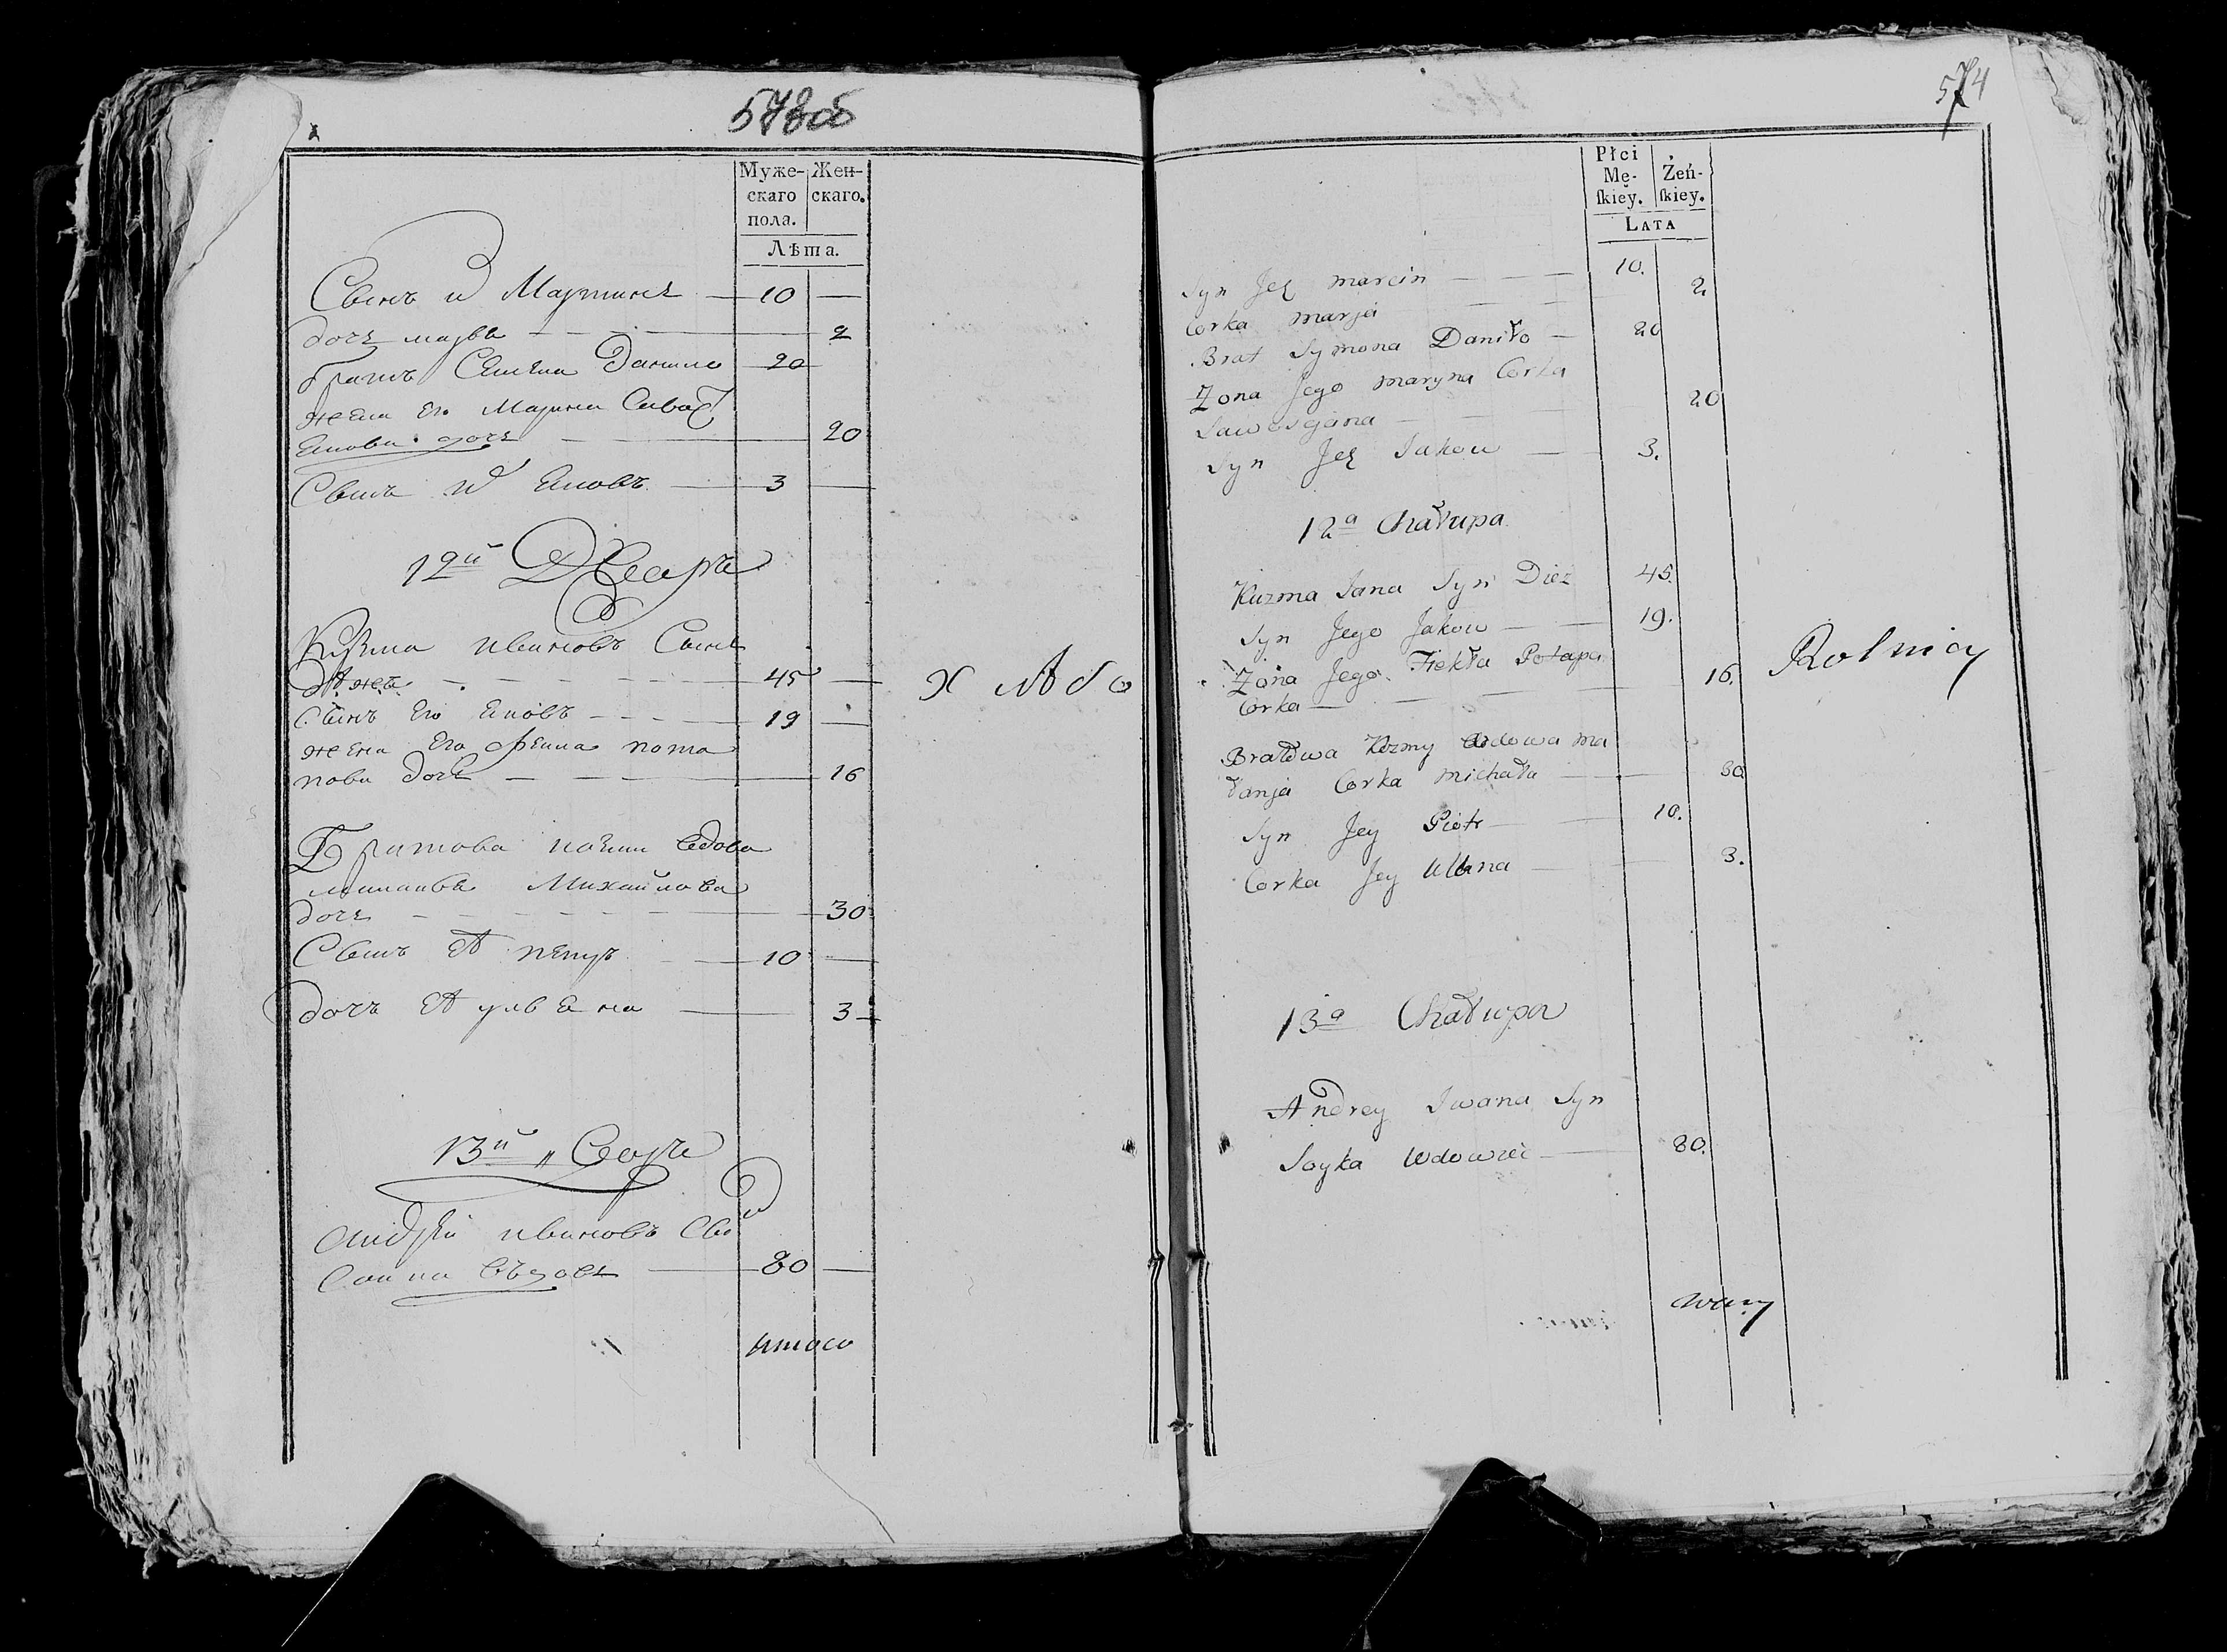 573об
Муже-
скаго
пола.
Жен-
скаго.
Лѣта.
Сынъ и Мартинъ 10
дочь марья 2
братъ Семена Данило 20
жена Его Марина Савост
Янова дочь 20
Сынъ и Яковъ 3
12й Дворъ
Кузма ивановъ Сынъ
Дѣжъ 45
Сынъ Его Яковъ 19
жена Его фекла пота
пова дочь 16
Братова козмы вдова
миланья Михайлова
дочь 30
Сынъ Ея петръ 10
дочь Ея ульяна 3
13й Дворъ
Андрей ивановъ Сы
Сойка вдовъ 80
итого
х лѣбо
574
Płci
Mę-
ſkiey.
Żeń-
ſkiey.
LATA
Syn Jeg marcin 10.
Corka marja 2
Brat Symona Daniło 20
Zona Jego maryna Corka
Sawosyjana 20
Syn Jeg Jakow 3.
12a Chałupa
Kuzma Jana Syn Dież 45.
Syn Jego Jakow 19.
Zona Jego Fiekła Potapa
Corka 16.
Bratowa Kozmy Wdowa ma
łanja Corka michała 30.
Syn Jey Piotr 10.
Corka Jey Ullana 3.
13a Chałupa
Andrey Iwana Syn
Soyka Wdowiec 80.
Rolnicy